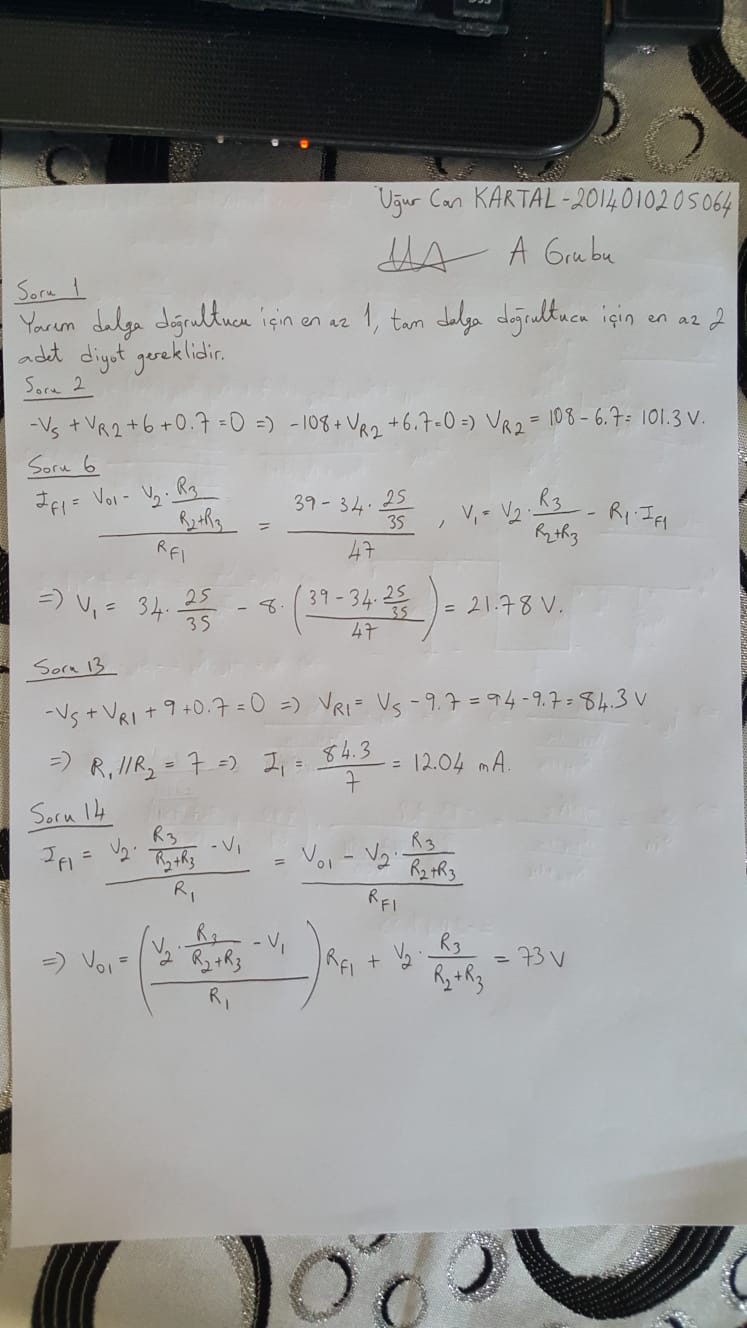 Uğur Can KARTAL-2014010205064
A Grubu
Soru 1
Yarım dalga doğrultucu için en az 1, tam dalga doğrultucu için en az 2
adet diyot gereklidir.
Soru 2
-VS + VR2 + 6 + 0.7 = 0 => -108 + VR2 + 6.7 = 0 => VR2 = 108 - 6.7 = 101.3 V.
Soru 6
IF1 = (V01 - V2 · R3/(R2+R3))/RF1 = (39 - 34 · 25/35)/47 , V1 = V2 · R3/(R2+R3) - R1 · IF1
=> V1 = 34 · 25/35 - 8 · ((39 - 34 · 25/35)/47) = 21.78 V.
Soru 13
-VS + VR1 + 9 + 0.7 = 0 => VR1 = VS - 9.7 = 94 - 9.7 = 84.3 V
=> R1 // R2 = 7 => I1 = 84.3/7 = 12.04 mA.
Soru 14
IF1 = (V2 · R3/(R2+R3) - V1)/R1 = (V01 - V2 · R3/(R2+R3))/RF1
=> V01 = ((V2 · R3/(R2+R3) - V1)/R1) RF1 + V2 · R3/(R2+R3) = 73 V